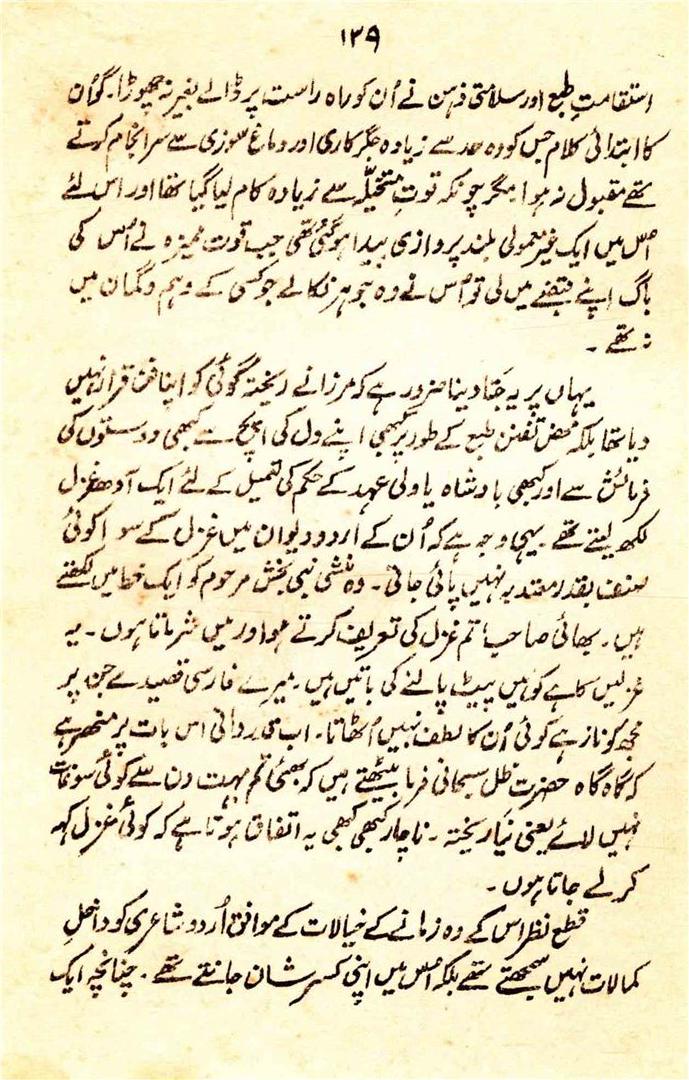 ۱۳۹
استقامتِ طبع اور سلامتی ذہن نے اُن کو راہ راست پر ڈالے بغیر نہ چھوڑا۔ گو اُن
کا ابتدائی کلام جس کو وہ حد سے زیادہ جگر کاری اور دماغ سوزی سے سرانجام کرتے
تھے مقبول نہ ہوا۔ مگر چونکہ قوتِ متخیلّہ سے زیادہ کام لیا گیا تھا اور اس لئے
اُس میں ایک غیر معمولی بلند پروازی پیدا ہو گئی تھی جب قوت ممیزہ نے اُس کی
باگ اپنے قبضے میں لی تو اُس نے وہ جوہر نکالے جو کسی کے وہم و گمان میں
نہ تھے۔
یہاں پر یہ جَتا دینا ضرور ہے کہ مرزا نے ریختہ گوئی کو اپنا فن قرار نہیں
دیا تھا بلکہ محض تفنن طبع کے طور پر کبھی اپنے دل کی اپج سے کبھی دوستوں کی
فرمائش سے اور کبھی بادشاہ یا ولی عہد کے حکم کی تعمیل کے لئے ایک آدھ غزل
لکھ لیتے تھے۔ یہی وجہ ہے کہ اُن کے اردو دیوان میں غزل کے سوا کوئی
صنف بقدر معتد بہ نہیں پائی جاتی۔ وہ منشی نبی بخش مرحوم کو ایک خط میں لکھتے
ہیں۔ بھائی صاحب! تم غزل کی تعریف کرتے ہو اور میں شرماتا ہوں۔ یہ
غزلیں کاہے کو ہیں پیٹ پالنے کی باتیں ہیں۔ میرے فارسی قصیدے جن پر
مجھ کو ناز ہے کوئی اُن کا لطف نہیں اُٹھاتا۔ اب قدردانی اس بات پر منحصر ہے
کہ گاہ گاہ حضرت ظل سبحانی فرما بیٹھتے ہیں کہ بھئی تم بہت دن سے کوئی سوغات
نہیں لائے یعنی نیا ریختہ۔ ناچار کبھی کبھی یہ اتفاق ہوتا ہے کہ کوئی غزل کہہ
کر لے جاتا ہوں۔
قطع نظر اس کے وہ زمانے کے خیالات کے موافق اُردو شاعری کو داخلِ
کمالات نہیں سمجھتے تھے بلکہ اُس میں اپنی کسرِ شان جانتے تھے۔ چنانچہ ایک